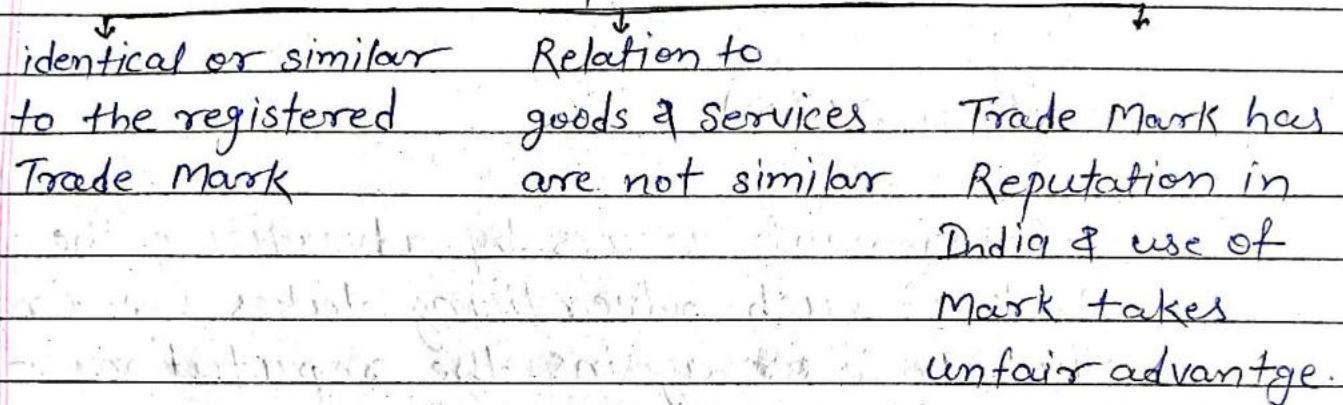 identical or similar
to the registered
Trade Mark
Relation to
goods & Services
are not similar
Trade Mark has
Reputation in
India & use of
Mark takes
unfair advantge.